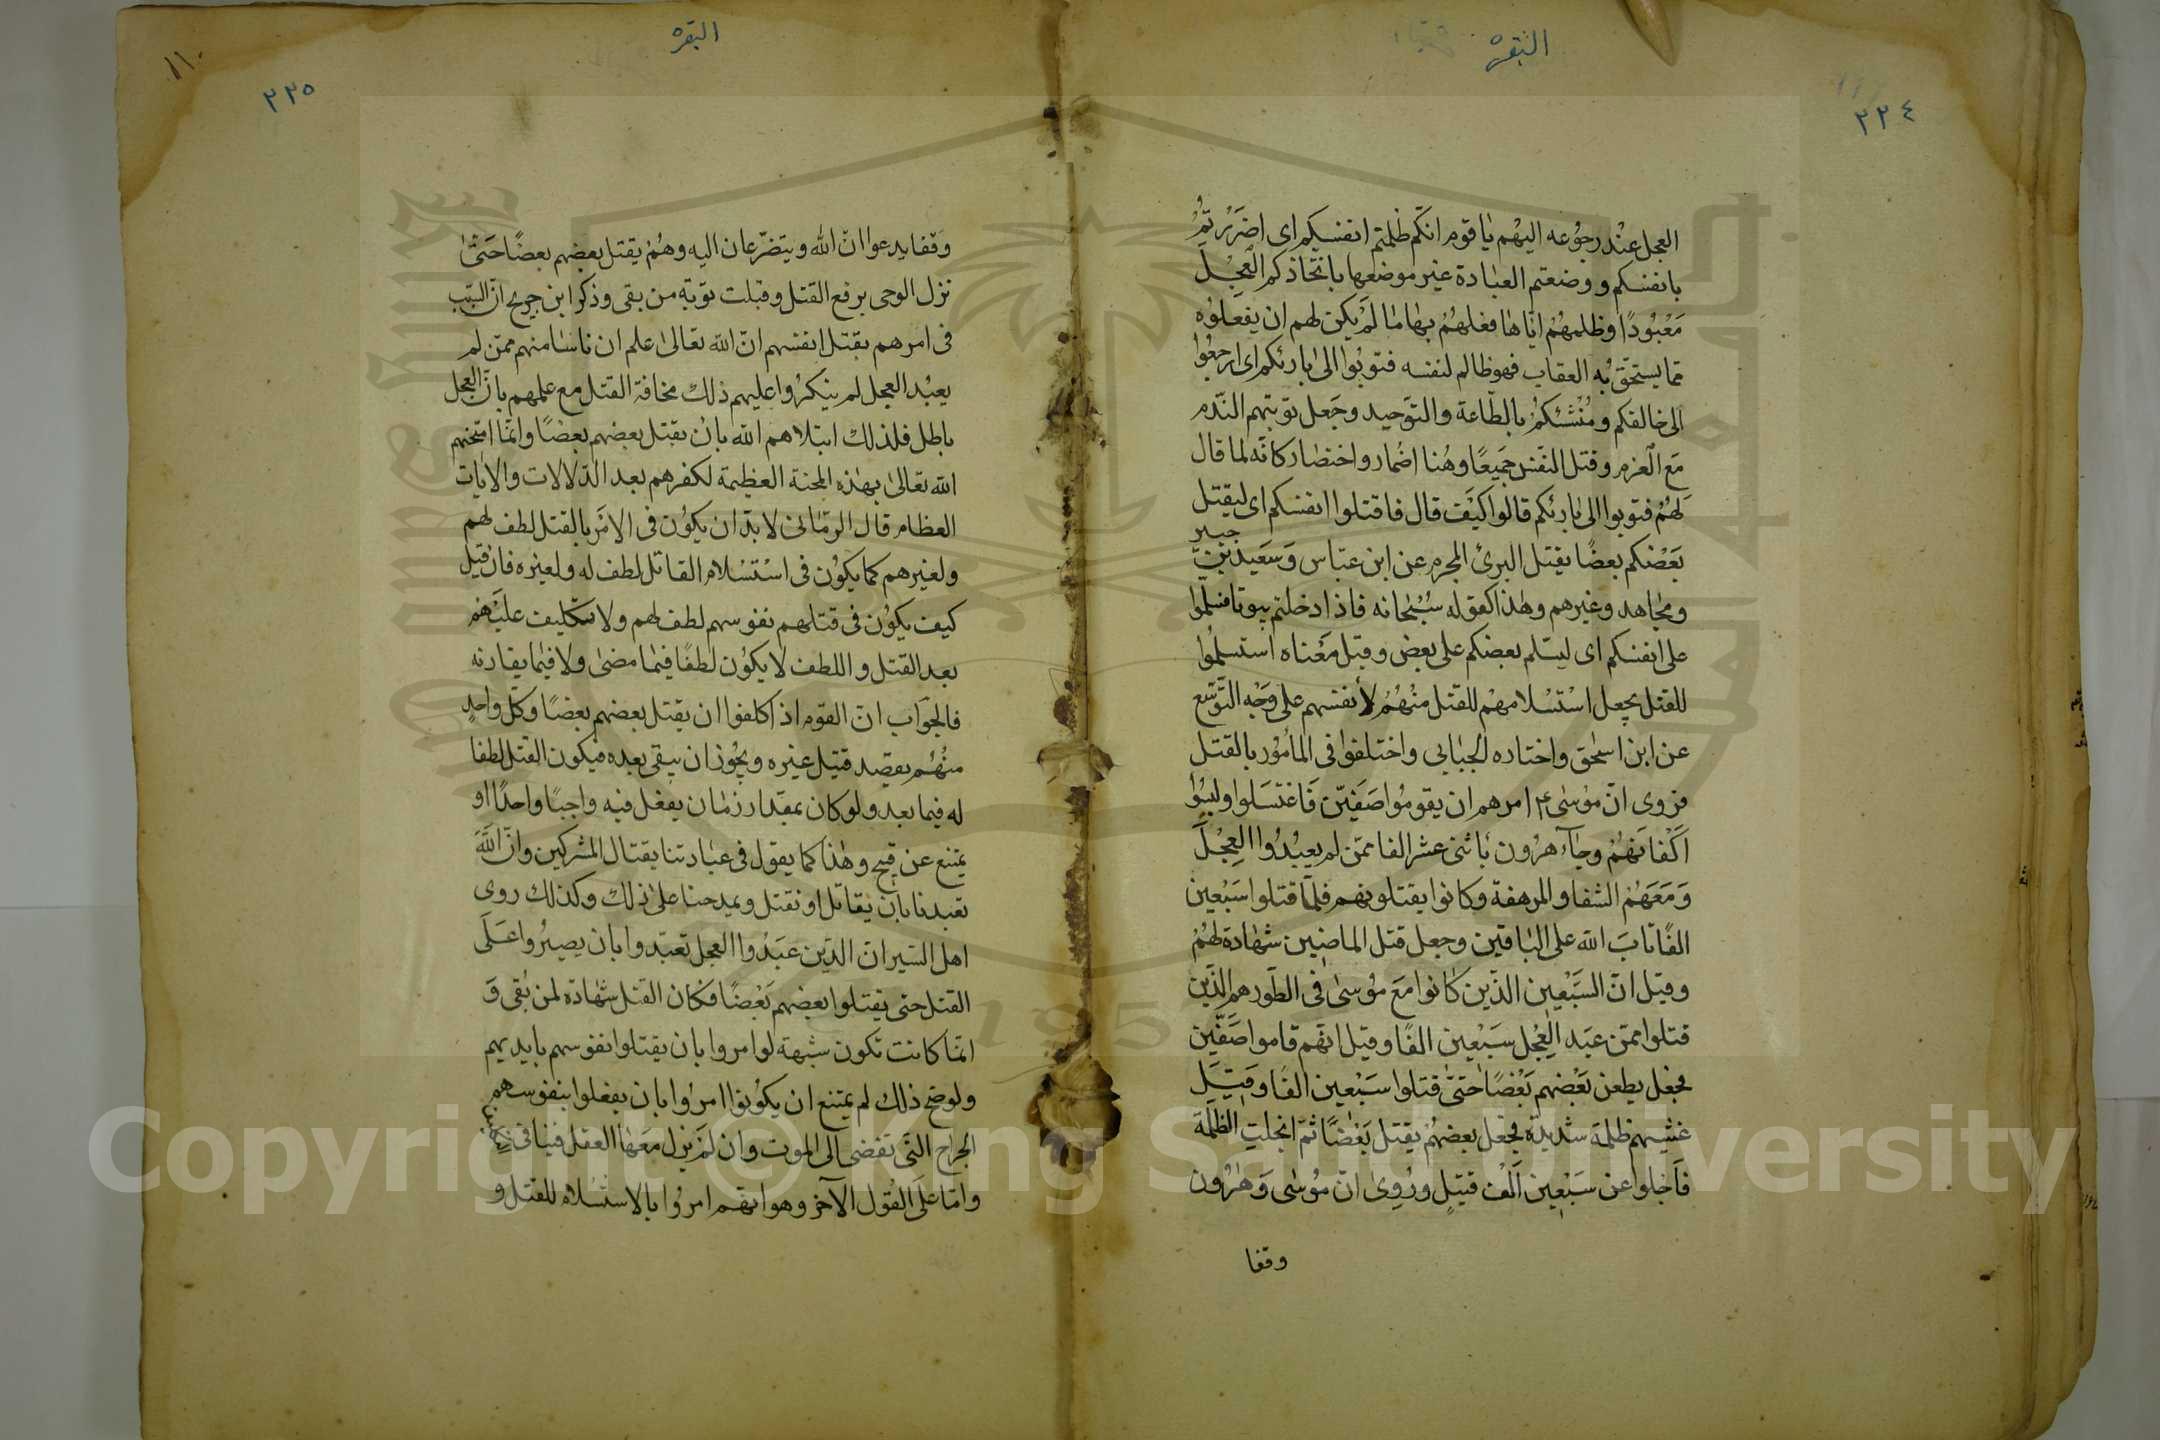 البقرة
٢٢٤
العجل عند رجوعه اليهم يا قوم انكم ظلمتم انفسكم اى اضررتم
بانفسكم ووضعتم العبادة غير موضعها باتخاذكم العجل
معبودًا وظلمهم اياها فعلهم بها ما لم يكن لهم ان يفعلوه
مما يستحق به العقاب فهو ظالم لنفسه فتوبوا الى بارئكم اى ارجعوا
الى خالقكم ومنشئكم بالطاعة والتوحيد وجعل توبتهم الندم
مع العزم وقتل النفس جميعًا وهنا اضمار واختصار كانه لما قال
لهم فتوبوا الى بارئكم قالوا كيف قال فاقتلوا انفسكم اى ليقتل
بعضكم بعضًا يقتل البرئ المجرم عن ابن عباس وسعيد بن جبير
ومجاهد وغيرهم وهذا كقوله سبحانه فاذا دخلتم بيوتا فسلموا
على انفسكم اى ليسلم بعضكم على بعض وقيل معناه استسلموا
للقتل بجعل استسلامهم للقتل منهم لأنفسهم على وجه التوسع
عن ابن اسحق واختاره الجبايى واختلفوا فى المأمور بالقتل
فروى ان موسى ع امرهم ان يقوموا صفين فاغتسلوا ولبسوا
اكفانهم وجآء هرون باثنى عشر الفا ممن لم يعبدوا العجل
ومعهم الشفار المرهفة وكانوا يقتلونهم فلما قتلوا سبعين
الفًا تاب الله على الباقين وجعل قتل الماضين شهادة لهم
وقيل ان السبعين الذين كانوا مع موسى فى الطور هم الذين
قتلوا ممن عبد العجل سبعين الفًا وقيل انهم قاموا صفين
فجعل يطعن بعضهم بعضًا حتى قتلوا سبعين الفًا وقيل
غشيهم ظلمة شديدة فجعل بعضهم يقتل بعضًا ثم انجلت الظلمة
فاجلوا عن سبعين الف قتيل وروى ان موسى وهرون
وقفا
البقرة
٢٢٥
١١٠
وقفا يدعوان الله ويتضرعان اليه وهم يقتل بعضهم بعضًا حتى
نزل الوحى برفع القتل وقبلت توبة من بقى وذكر ابن جريح ان السبب
فى امرهم بقتل انفسهم ان الله تعالى علم ان ناسا منهم ممن لم
يعبد العجل لم ينكروا عليهم ذلك مخافة القتل مع علمهم بان العجل
باطل فلذلك ابتلاهم الله بان يقتل بعضهم بعضًا وانما امتحنهم
الله تعالى بهذه المحنة العظيمة لكفرهم بعد الدلالات والآيات
العظام قال الرمانى لا بد ان يكون فى الامر بالقتل لطف لهم
ولغيرهم كما يكون فى استسلام القاتل لطف له ولغيره فان قيل
كيف يكون فى قتلهم نفوسهم لطف لهم ولا تكليف عليهم
بعد القتل واللطف لا يكون لطفًا فيما مضى ولا فيما يقارنه
فالجواب ان القوم اذا كلفوا ان يقتل بعضهم بعضًا وكل واحد
منهم يقصد قتيل غيره ويجوز ان يبقى بعده فيكون القتل لطفا
له فيما بعد ولو كان بمقدار زمان يفعل فيه واجبًا واحدًا او
يمتنع عن قبيح وهذا كما يقول فى عبادتنا بقتال المشركين وان الله
تعبدنا بان نقاتل او نقتل ويمدحنا على ذلك وكذلك روى
اهل السير ان الذين عبدوا العجل تعبدوا بان يصبروا على
القتل حتى يقتلوا بعضهم بعضًا فكان القتل شهادة لمن بقى و
انما كانت تكون شبهة لو امروا بان يقتلوا نفوسهم بايديهم
ولو صح ذلك لم يمتنع ان يكونوا امروا بان يفعلوا بنفوسهم
الجراح التى تفضى الى الموت وان لم يزل معها العقل فينافى
واما على القول الآخر وهو انهم امروا بالاستسلام للقتل و
Copyright © King Saud University
1957